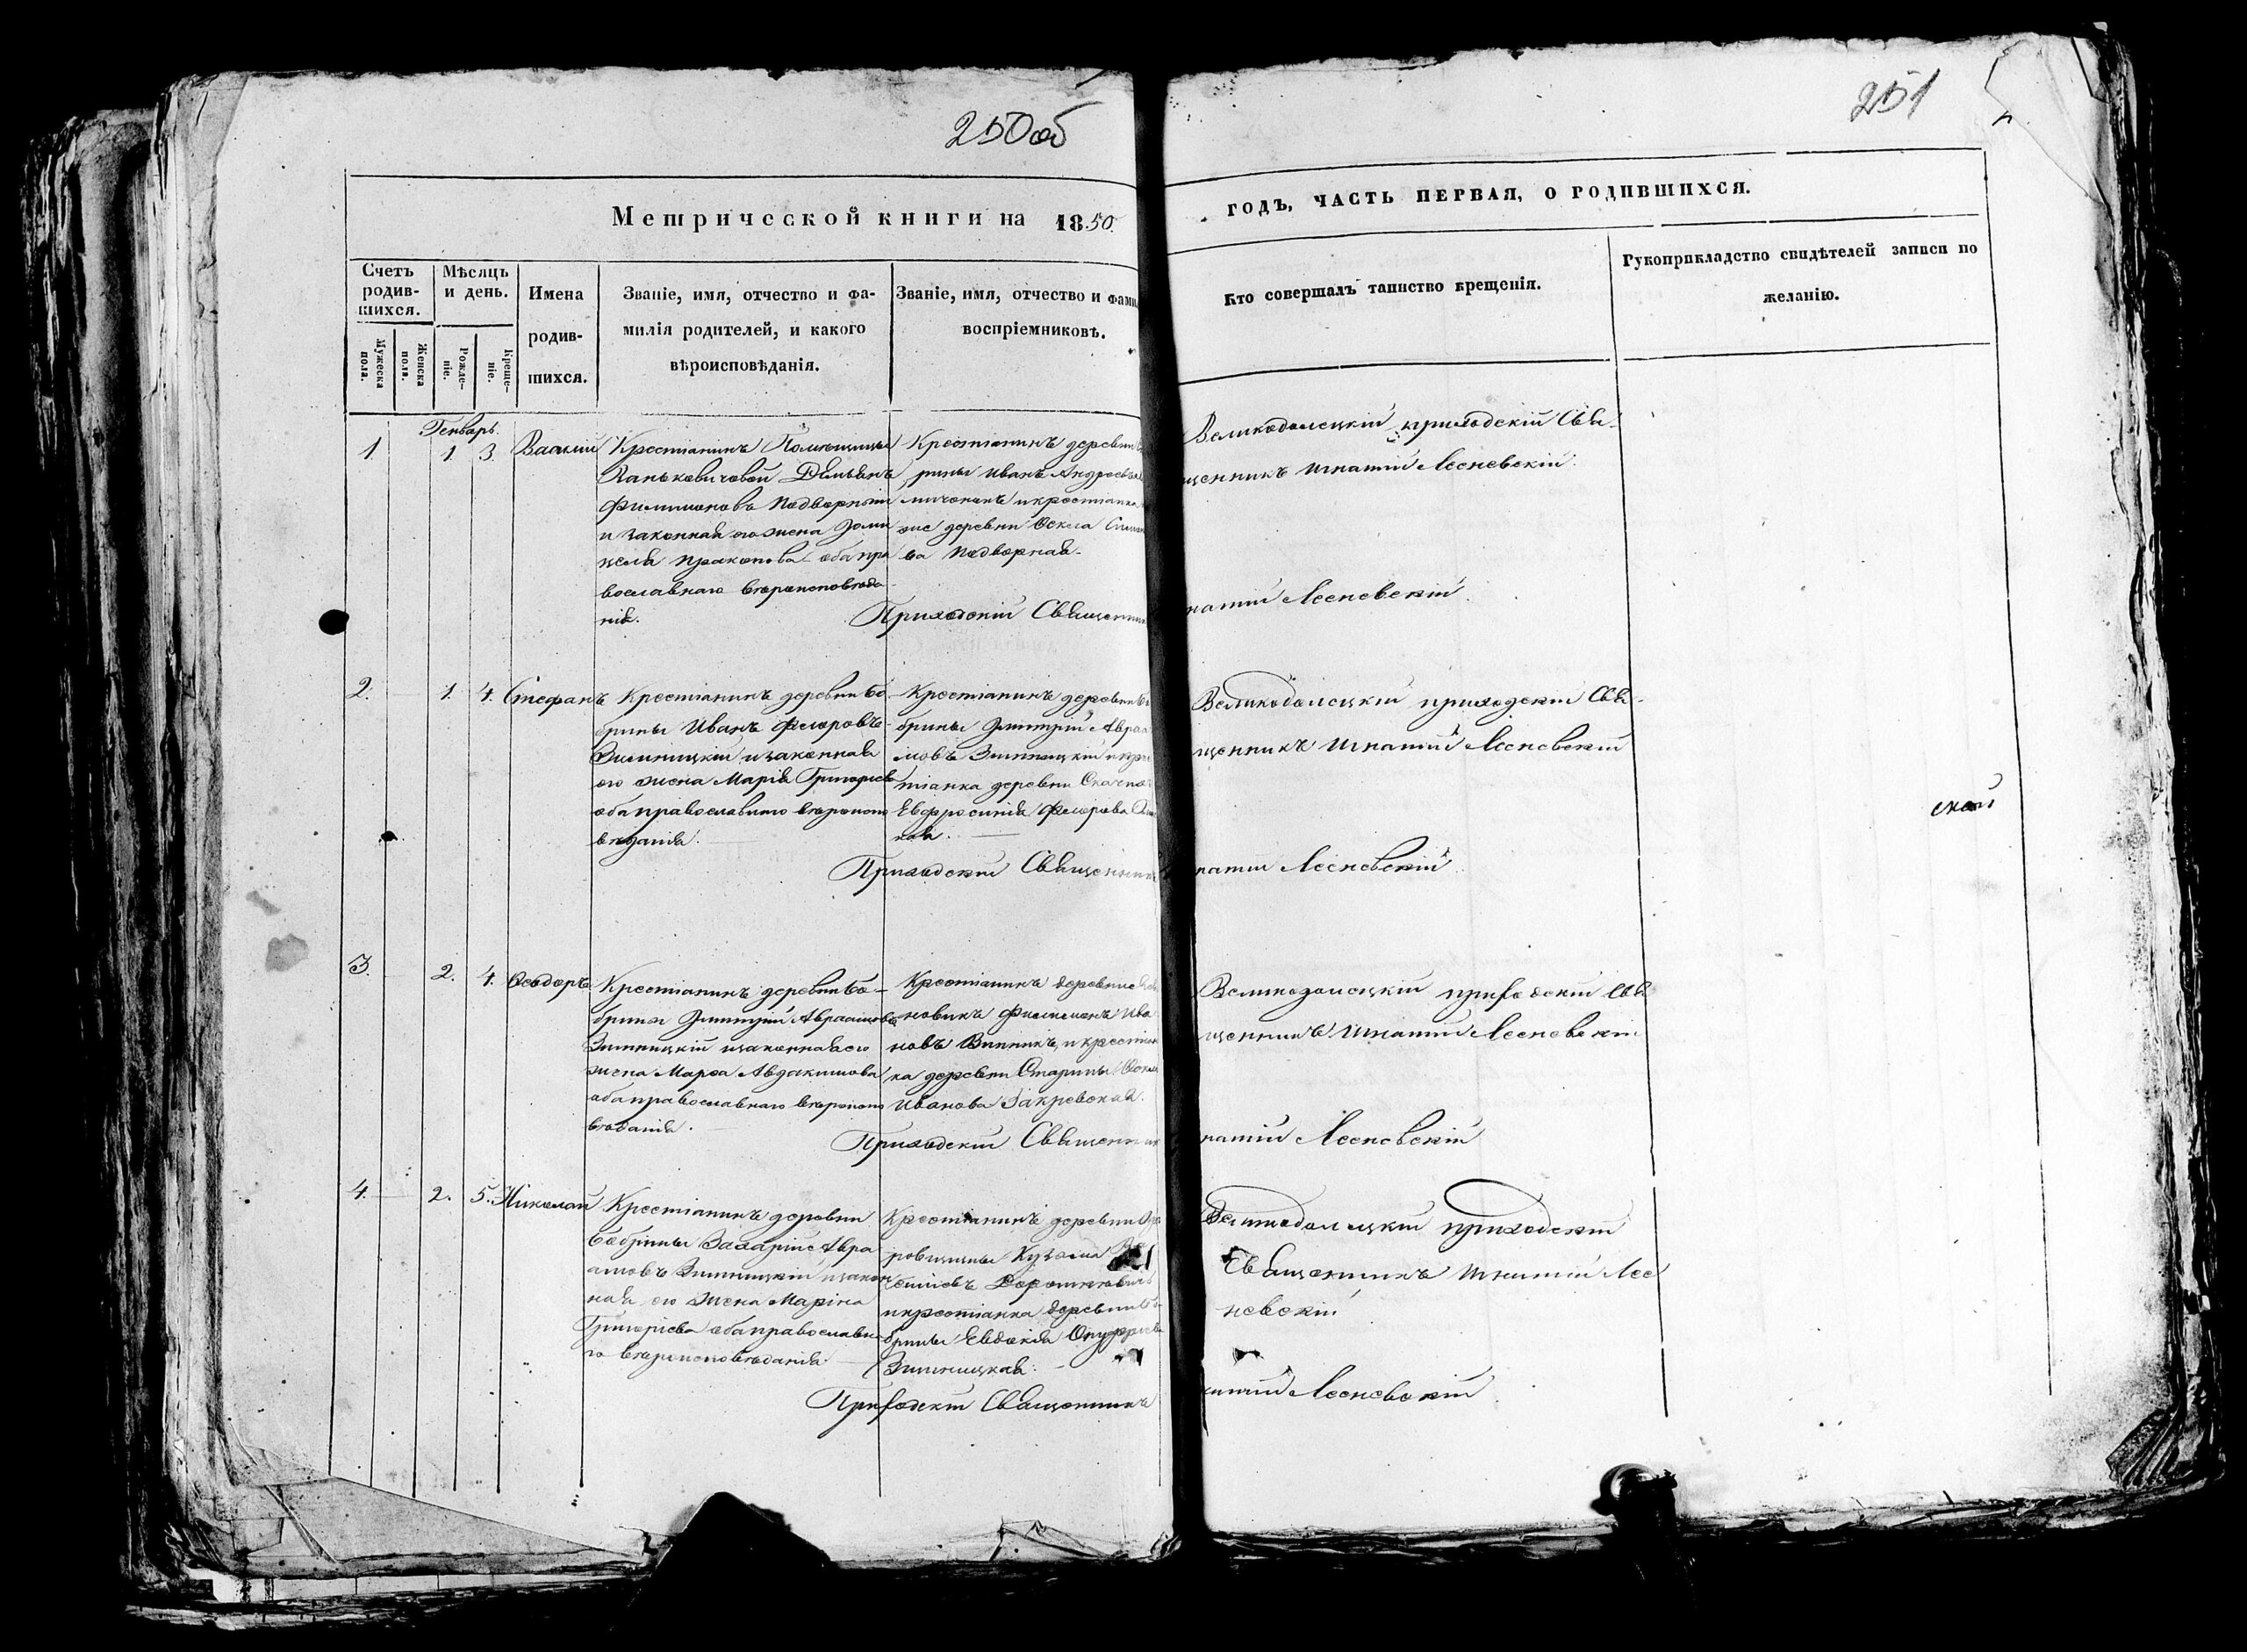 250об
251
Метрической книги на 1850.
ГОДЪ, ЧАСТЬ ПЕРВАЯ, О РОДИВШИХСЯ.
Счетъ родив-шихся.
Мужеска пола.
Женска пола.
Мѣсяцъ и день.
Рожде-ніе.
Креще-ніе.
Имена
родив-
шихся.
Званіе, имя, отчество и фа-
милія родителей, и какого
вѣроисповѣданія.
Званіе, имя, отчество и фами
воспріемниковъ.
Кто совершалъ таинство крещенія.
Рукоприкладство свидѣтелей записи по
желанію.
Генварь.
1 1. 3.
Крестіанинъ Помѣщицы
Ваньковичовой Демьянъ
Филимонова Подворный
и законная его жена Доми
целя Прокопова оба пра
вославнаго вѣроисповѣда
нія.
Крестіанинъ деревни
рины Иванъ Андреевъ
и крестіанка
деревни
ва Подворная.
Великодолецкій приходскій Свя-
щенникъ Игнатій Лесневскій.
Приходскій Священник
натій Лесневскій
2. 1. 4. Стефанъ
Крестіанинъ деревни Бо-
брины Иванъ Феоровъ
Зимницкій и законная
его жена Марія Григорьева
оба православнаго вѣроиспо
вѣданія.
Крестіанинъ деревни Бо
брины Дмитрій Авраа
мовъ Зимницкій и крес
тіанка деревни
Евфросинія Феорова
ная.
Великодолецкій приходскій Свя-
щенникъ Игнатій Лесневскій
ской
Приходскій Священник
натій Лесневскій
3. 2. 4. Ѳеодоръ
Крестіанинъ деревни Бо-
брины Дмитрій Авраамовъ
Зимницкій и законная его
жена Марѳа Авдакимова
оба православнаго вѣроиспо
вѣданія.
Крестіанинъ деревни
новики Филимонъ Ива
новъ Винникъ, и крестіан
ка деревни Старины
Иванова Закревская.
Великодолецкій приходскій Свя
щенникъ Игнатій Лесневскій
Приходскій Священник
натій Лесневскій
4. 2. 5. Николай
Крестіанинъ деревни
Бобрины Захарій Авра
амовъ Зимницкій и закон
ная его жена Марина
Григорьева оба православна
го вѣроисповѣданія.
Крестіанинъ деревни
ровщины Кузьма
и крестіанка деревни Бо-
брины Евдокія Онуфріева
Зимницкая.
Великодолецкій приходскій
Священникъ Игнатій Лес
невскій
Приходскій Священникъ
натій Лесневскій